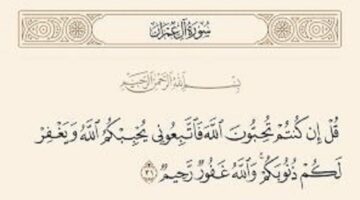 سُورَةُ آلِ عِمْرَان
بِسْمِ اللَّهِ الرَّحْمَٰنِ الرَّحِيمِ
قُلْ إِن كُنتُمْ تُحِبُّونَ اللَّهَ فَاتَّبِعُونِي يُحْبِبْكُمُ اللَّهُ وَيَغْفِرْ
لَكُمْ ذُنُوبَكُمْ ۗ وَاللَّهُ غَفُورٌ رَّحِيمٌ ٣١